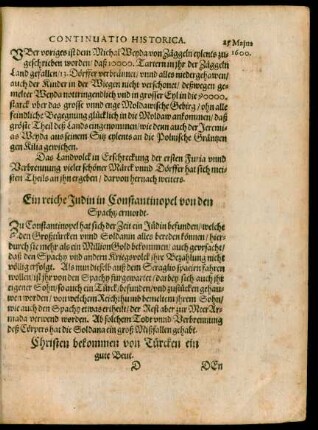 CONTINUATIO HISTORICA.
25 Majus
1600.
VBer voriges ist dem Michal Weyda von Zäggeln eylents zu-
geschrieben worden / daß 20000. Tartern in jhr der Zäggeln
Land gefallen / 13. Dörffer verbrännt / vnnd alles nidergehawen /
auch der Kinder in der Wiegen nicht verschonet / deßwegen gem-
meldter Weyda notträngendlich vnd in grosser Eyl in die 90000.
starck vber das grosse vnnd enge Moldawische Gebirg / ohn alle
feindtliche Begegnung glücklich in die Moldaw ankommen / daß
gröste Theil deß Lands eingenommen / wie denn auch der Jeremi-
as Weyda auß seinem Sitz eylents an die Polnische Gräntzen
gen Kilia gewichen.
Das Landvolck in Erschreckung der ersten Furia vnnd
Verbrennung vieler schöner Märck vnnd Dörffer hat sich mei-
sten Theils an jhn ergeben / darvon hernach weiters.
Ein reiche Jüdin in Constantinopel von den
Spachy ermordt.
ZU Constantinopel hat sich der Zeit ein Jüdin befunden / welche
den Großtürcken vnnd Soldanin alles bereden können / hier-
durch sie mehr als ein Million Gold bekommen / auch gevrsacht /
daß den Spachy vnd andern Kriegsvolck jhre Bezahlung nicht
völlig erfolgt. Als nun dieselb auß dem Seraglio spaciern fahren
wollen / ist jhr von den Spachy fürgewartet / darbey sich auch jhr
eigener Sohn / so auch ein Türck / befunden / vnd zu stücken gehau-
wen worden / von welchem Reichthumb dem eltern jhrem Sohn /
wie auch den Spachy etwas ertheilt / der Rest aber zur Meer Ar-
mada verwend worden. Ab solchem Todt vnnd Verbrennung
deß Cörpers hat die Soldana ein groß Mißfallen gehabt.
Christen bekommen von Türcken ein
gute Beut.
D
DEn